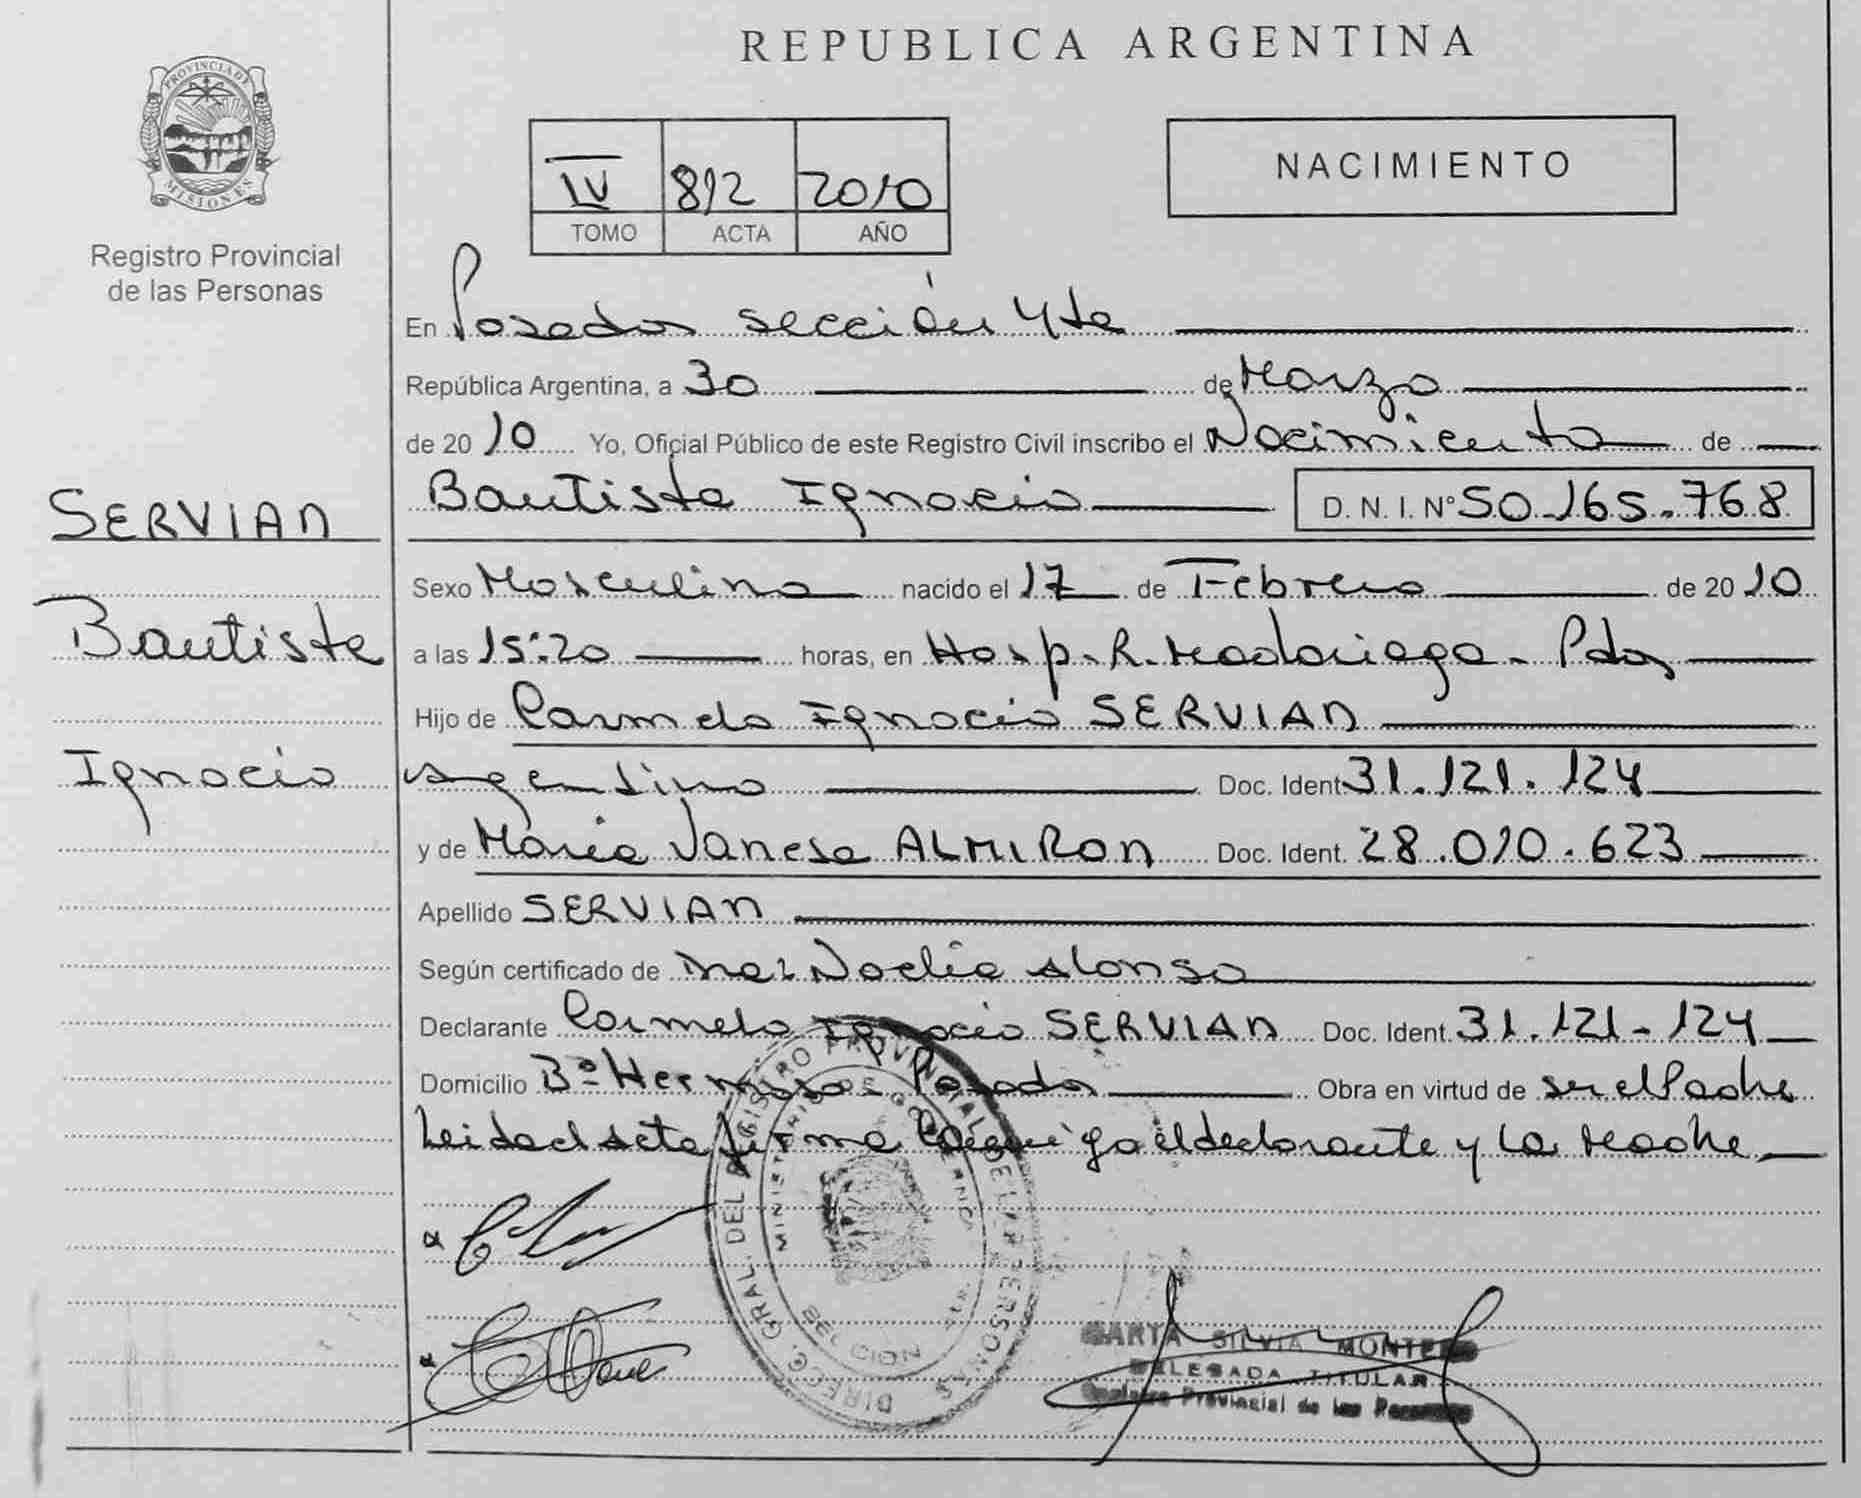 REPUBLICA ARGENTINA
PROVINCIA DE MISIONES
Registro Provincial
de las Personas
IV 812 2010
TOMO ACTA AÑO
NACIMIENTO
En Posadas sección 4ta
República Argentina, a 30 de Marzo
de 2010 Yo, Oficial Público de este Registro Civil inscribo el Nacimiento de
Bautista Ignacio D. N. I. Nº 50.165.768
SERVIAN
Bautista
Ignacio
Sexo Masculino nacido el 17 de Febrero de 2010
a las 15:20 horas, en Hosp. R. Madariaga - Pdas
Hijo de Carmelo Ignacio SERVIAN
Argentino Doc. Ident. 31.121.124
y de María Vanesa ALMIRON Doc. Ident. 28.010.623
Apellido SERVIAN
Según certificado de Noelia Alonso
Declarante Carmelo Ignacio SERVIAN Doc. Ident. 31.121-124
Domicilio Bº Hermoso Posadas Obra en virtud de ser el Padre
Leida el acta firma el declarante y la Madre
DIRECC. GRAL. DEL REGISTRO PROVINCIAL DE LAS PERSONAS
MINISTERIO DE GOBIERNO
MARTA SILVIA MONTERO
DELEGADA TITULAR
Registro Provincial de las Personas